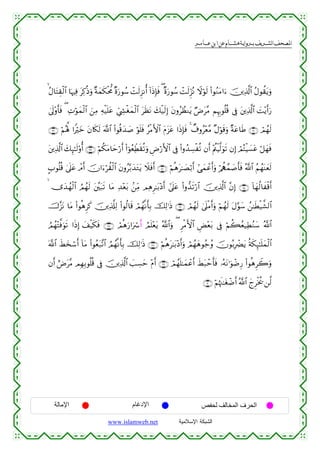 المصحف الشريف برواية هشام عن ابن عامر
وَيَقُولُ الَّذِينَ ءَامَنُوا لَوْلَا نُزِّلَتْ سُورَةٌ فَإِذَا أُنزِلَتْ سُورَةٌ مُّحْكَمَةٌ وَذُكِرَ فِيهَا الْقِتَالُ
رَأَيْتَ الَّذِينَ فِي قُلُوبِهِم مَّرَضٌ يَنظُرُونَ إِلَيْكَ نَظَرَ الْمَغْشِيِّ عَلَيْهِ مِنَ الْمَوْتِ فَأَوْلَىٰ
لَهُمْ طَاعَةٌ وَقَوْلٌ مَّعْرُوفٌ فَإِذَا عَزَمَ الْأَمْرُ فَلَوْ صَدَقُوا اللَّهَ لَكَانَ خَيْرًا لَّهُمْ
فَهَلْ عَسَيْتُمْ إِن تَوَلَّيْتُمْ أَن تُفْسِدُوا فِي الْأَرْضِ وَتُقَطِّعُوا أَرْحَامَكُمْ أُولَٰئِكَ الَّذِينَ
لَعَنَهُمُ اللَّهُ فَأَصَمَّهُمْ وَأَعْمَىٰ أَبْصَارَهُمْ أَفَلَا يَتَدَبَّرُونَ الْقُرْءَانَ أَمْ عَلَىٰ قُلُوبٍ
أَقْفَالُهَا إِنَّ الَّذِينَ ارْتَدُّوا عَلَىٰ أَدْبَارِهِم مِّن بَعْدِ مَا تَبَيَّنَ لَهُمُ الْهُدَى
الشَّيْطَانُ سَوَّلَ لَهُمْ وَأَمْلَىٰ لَهُمْ ذَٰلِكَ بِأَنَّهُمْ قَالُوا لِلَّذِينَ كَرِهُوا مَا نَزَّلَ
اللَّهُ سَنُطِيعُكُمْ فِي بَعْضِ الْأَمْرِ وَاللَّهُ يَعْلَمُ أَسْرَارَهُمْ فَكَيْفَ إِذَا تَوَفَّتْهُمُ
الْمَلَٰئِكَةُ يَضْرِبُونَ وُجُوهَهُمْ وَأَدْبَارَهُمْ ذَٰلِكَ بِأَنَّهُمُ اتَّبَعُوا مَا أَسْخَطَ اللَّهَ
وَكَرِهُوا رِضْوَانَهُ فَأَحْبَطَ أَعْمَالَهُمْ أَمْ حَسِبَ الَّذِينَ فِي قُلُوبِهِم مَّرَضٌ أَن
لَّن يُخْرِجَ اللَّهُ أَضْغَانَهُمْ
الحرف المخالف لحفص الإدغام الإمالة
الشبكة الإسلامية www.islamweb.net